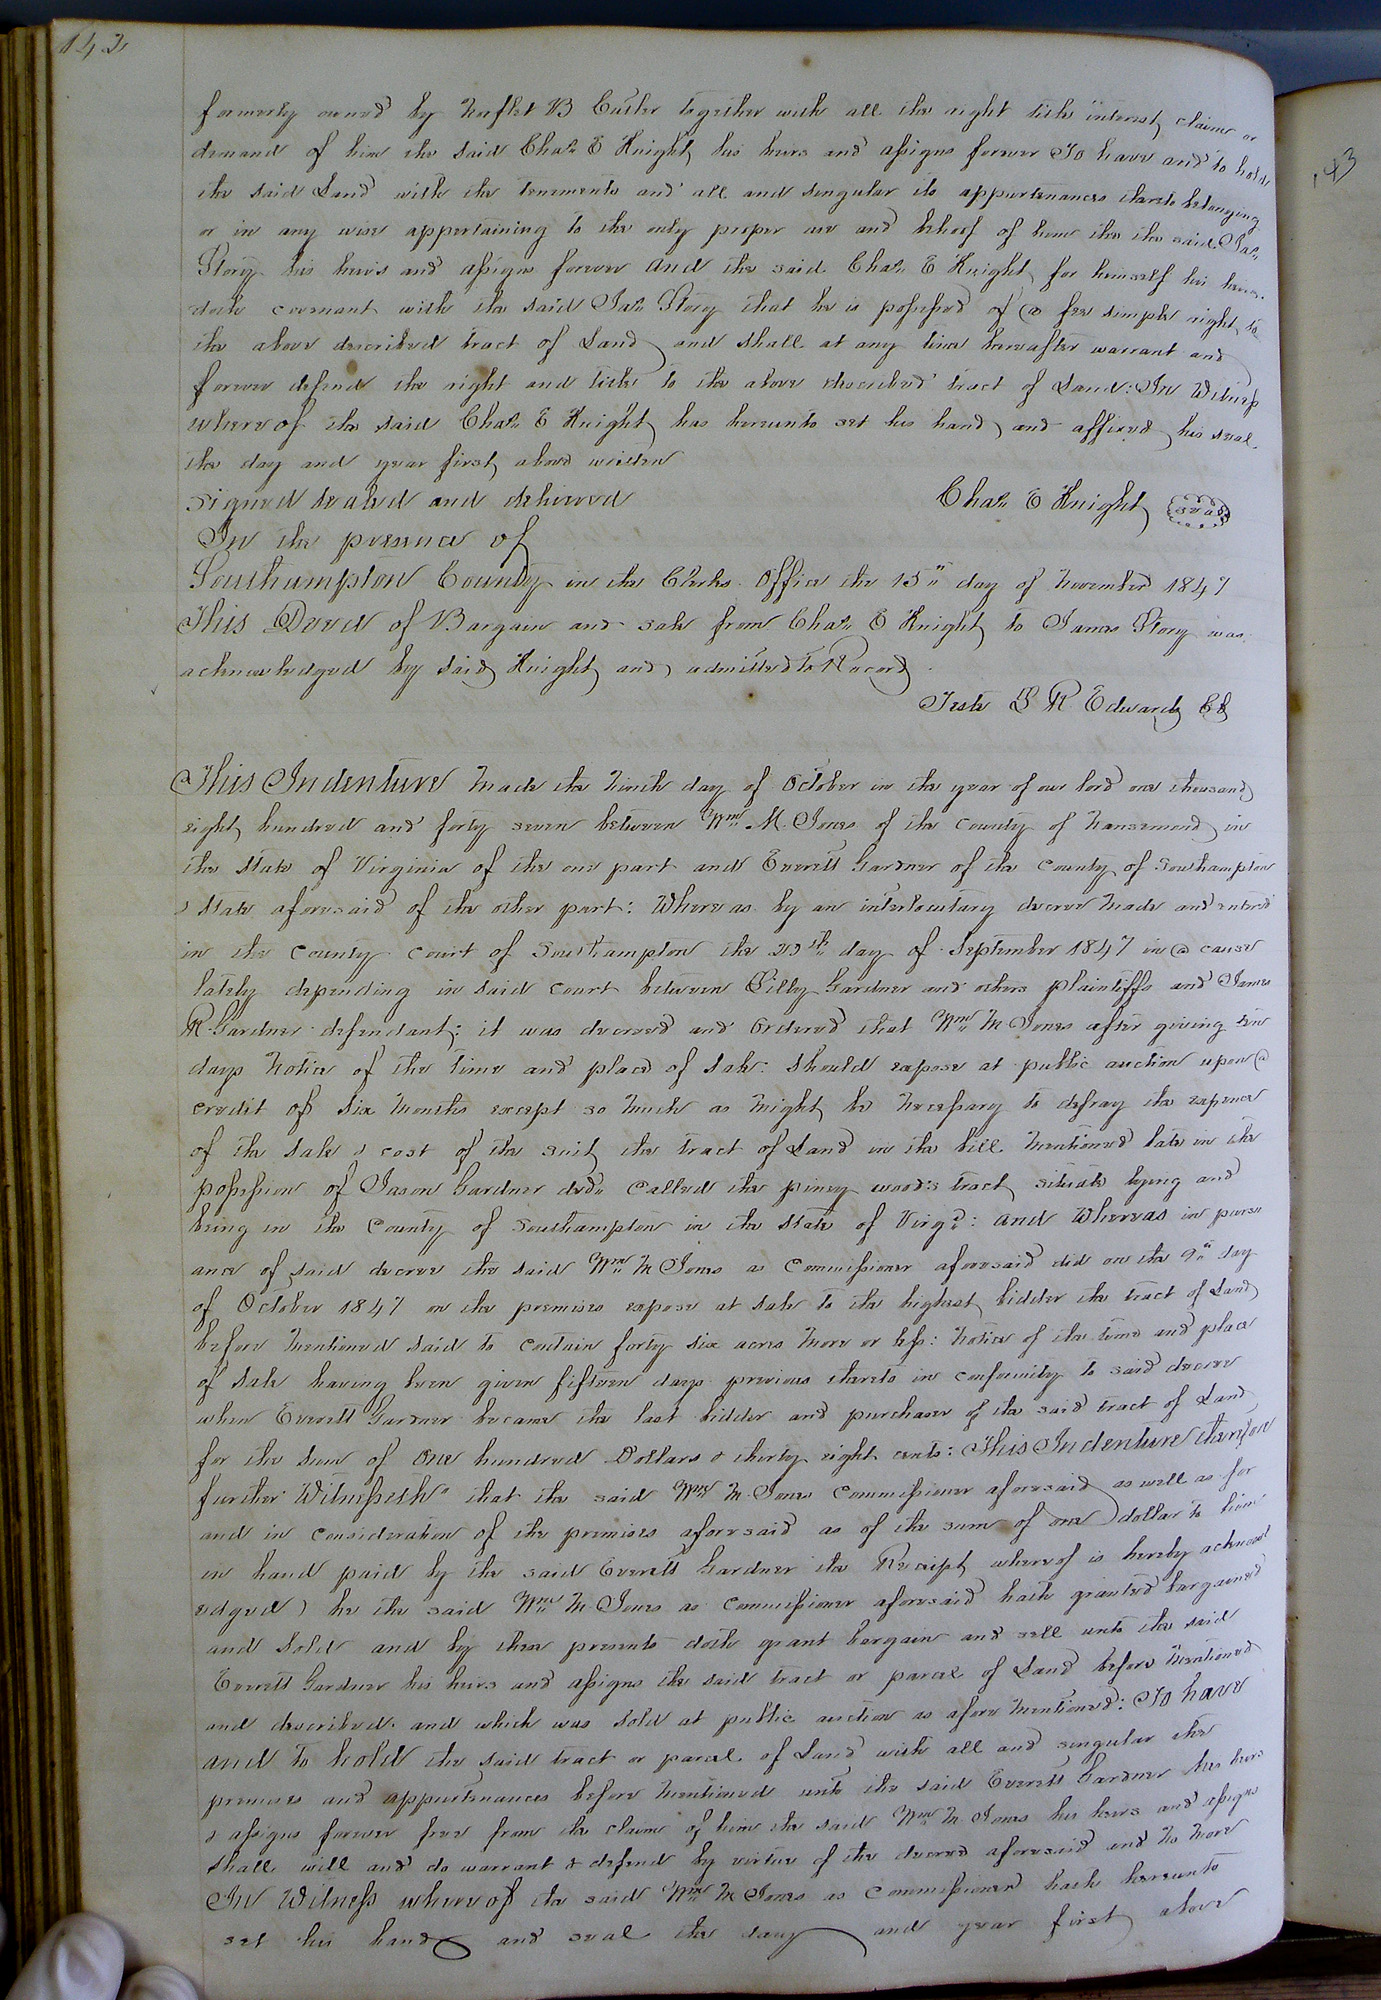 142
143
formerly owned by Norflet B Cutler together with all the right title interest claim or
demand of him the said Chas. E Knight his heirs and assigns forever To have and to hold
the said Land with the tenements and all and singular its appurtenances thereto belonging
or in any wise appertaining to the only proper use and behoof of him the the said Jas.
Story his heirs and assigns forever and the said Chas. E Knight for himself his heirs.
doth covenant with the said Jas. Story that he is possessed of a fee simple right to
the above described tract of Land and shall at any time hereafter warrant and
forever defend the right and title to the above described tract of Land: In Witness
whereof the said Chas. E Knight has hereunto set his hand and affixed his seal.
the day and year first above written
signed sealed and delivered Chas. E Knight seal
In the presence of
Southampton County in the Clerks Office the 15" day of November 1847
This Deed of Bargain and sale from Chas. E Knight to James Story was
acknowledged by said Knight and admitted to Record.
Teste L R Edwards Cl
This Indenture Made the Ninth day of October in the year of our lord one thousand
eight hundred and forty seven between Wm. M. Jones of the County of Nansemond in
the State of Virginia of the one part and Everett Gardner of the County of Southampton
& State aforesaid of the other part: Where as by an interlocutary decree Made and entered
in the County Court of Southampton the 23th day of September 1847 in a cause
lately depending in said Court between Gilly Gardner and others plaintiffs and James
R. Gardner defendant; it was decreed and Ordered that Wm. M Jones after giving ten
days Notice of the time and place of Sale: Should expose at public auction upon a
credit of Six Months except so Much as Might be Necessary to defray the expence
of the Sale & cost of the suit the tract of Land in the bill Mentioned late in the
possession of Jason Gardner decd. Called the piney woods tract situate lying and
being in the County of Southampton in the State of Virga: and Whereas in pursu
ance of said decree the said Wm. M Jones as Commissioner aforesaid did on the 9" day
of October 1847 on the premises expose at sale to the highest bidder the tract of Land
before Mentioned said to contain forty six acres More or less: Notice of the time and place
of Sale having been given fifteen days previous thereto in conformity to said decree
when Everett Gardner became the last bidder and purchaser of the said tract of Land
for the Sum of One hundred Dollars & thirty eight cents: This Indenture therefore
further Witnesseth" that the said Wm. M. Jones Commissioner aforesaid as well as for
and in consideration of the premises aforesaid as of the sum of one dollar to him
in hand paid by the said Everett Gardner the Receipt whereof is hereby acknowl
edged) he the said Wm. M Jones as Commissioner aforesaid hath granted bargained
and Sold and by these presents doth grant bargain and sell unto the said
Everett Gardner his heirs and assigns the said tract or parcel of Land before Mentioned
and described. and which was Sold at public auction as afore Mentioned: To have
and to hold the said tract or parcel of Land with all and singular the
premises and appurtenances before Mentioned unto the said Everett Gardner his heirs
& assigns forever free from the claim of him the said Wm. M Jones his heirs and assigns
Shall will and do warrant & defend by virtue of the decree aforesaid and No More
In Witness whereof the said Wm. M Jones as Commissioner hath hereunto
set his hand and seal the day and year first above